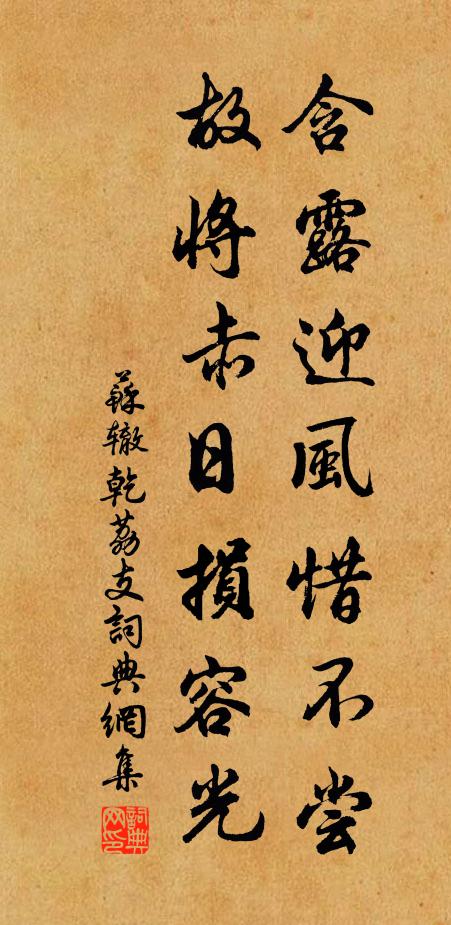 含露迎風惜不尝
故將赤日損容光
蘇辙乾荔支詞典網集
詞典网印